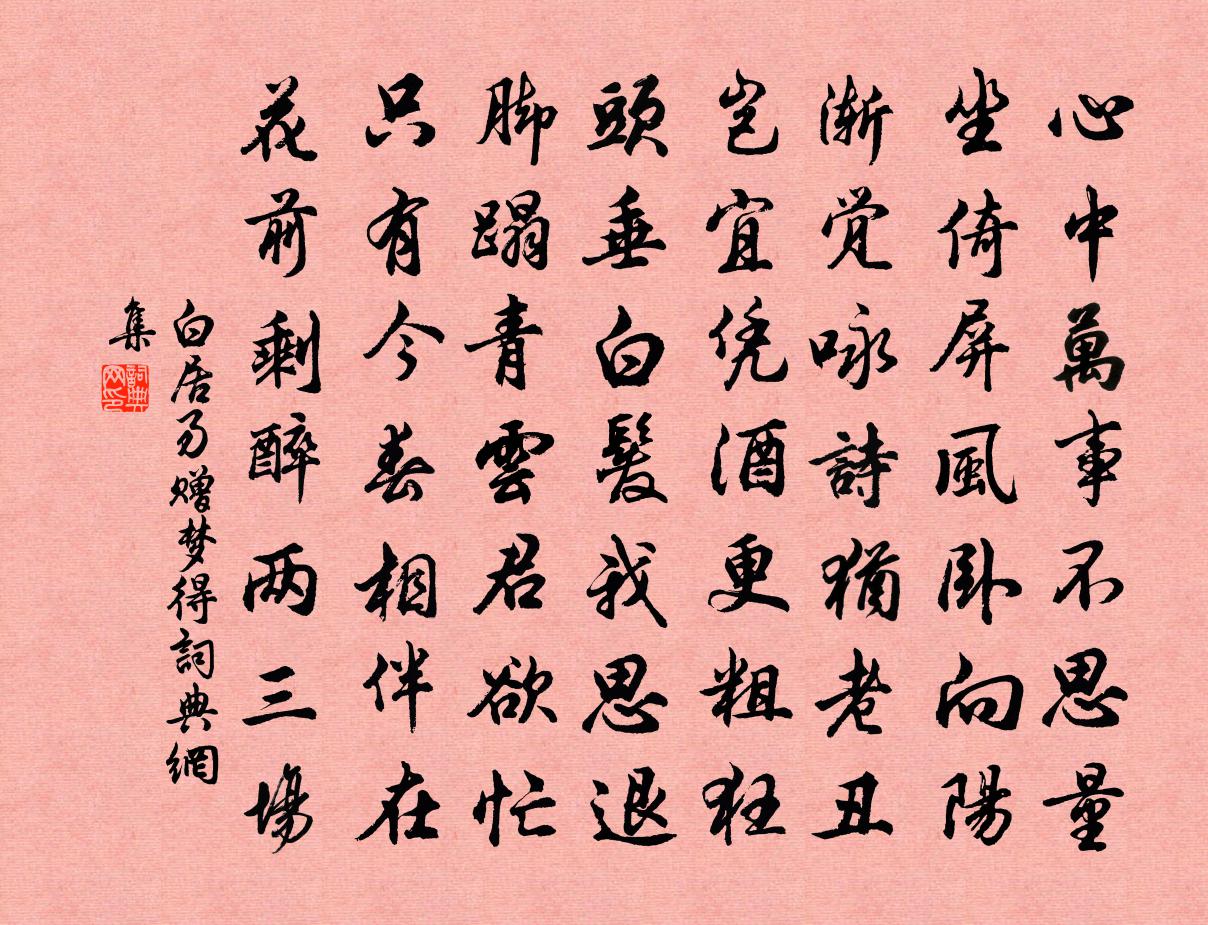 心中萬事不思量
坐倚屏風卧向陽
漸覚咏詩猶老丑
豈宜凭酒更粗狂
頭垂白髮我思退
脚蹋青雲君欲忙
只有今春相伴在
花前剩醉两三場
白居易赠梦得詞典網
集
詞典网印